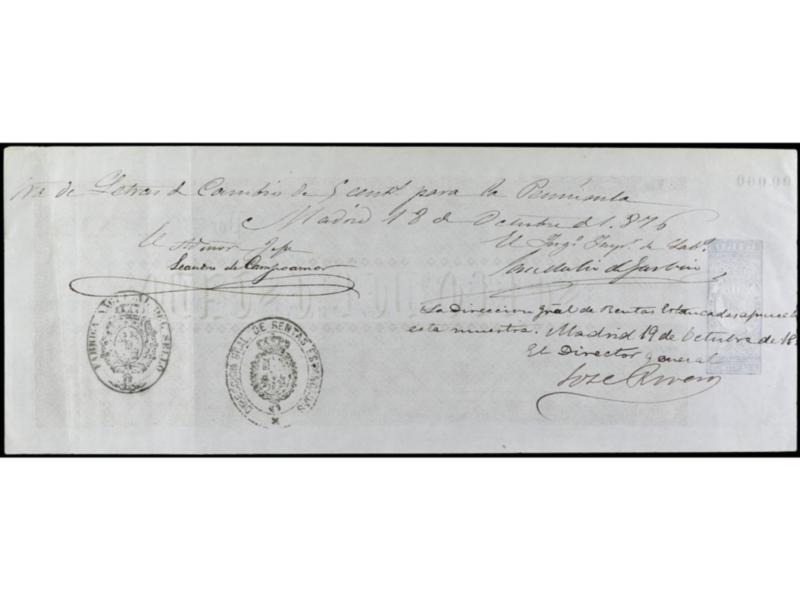 de Letras de Cambio de 5 cents para la Peninsula
Madrid 18 de Octubre de 1.876
El Admor Jefe
El Ingo. Inspr. de Labs.
Leandro de Campoamor
La Direccion gral de Rentas Estancadas aprueba
esta muestra. Madrid 19 de Octubre de 18
El Director general
Jose Rivero
FABRICA NACIONAL DEL SELLO
DIRECCION GRAL DE RENTAS ESTANCADAS
000.000